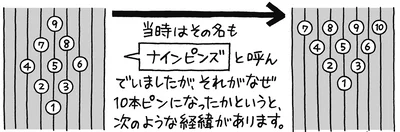 9
7 8
4 5 6
2 3
1
当時はその名も
ナインピンズ と呼ん
でいましたが、それがなぜ
10本ピンになったかというと、
次のような経緯があります。
7 8 9 10
4 5 6
2 3
1